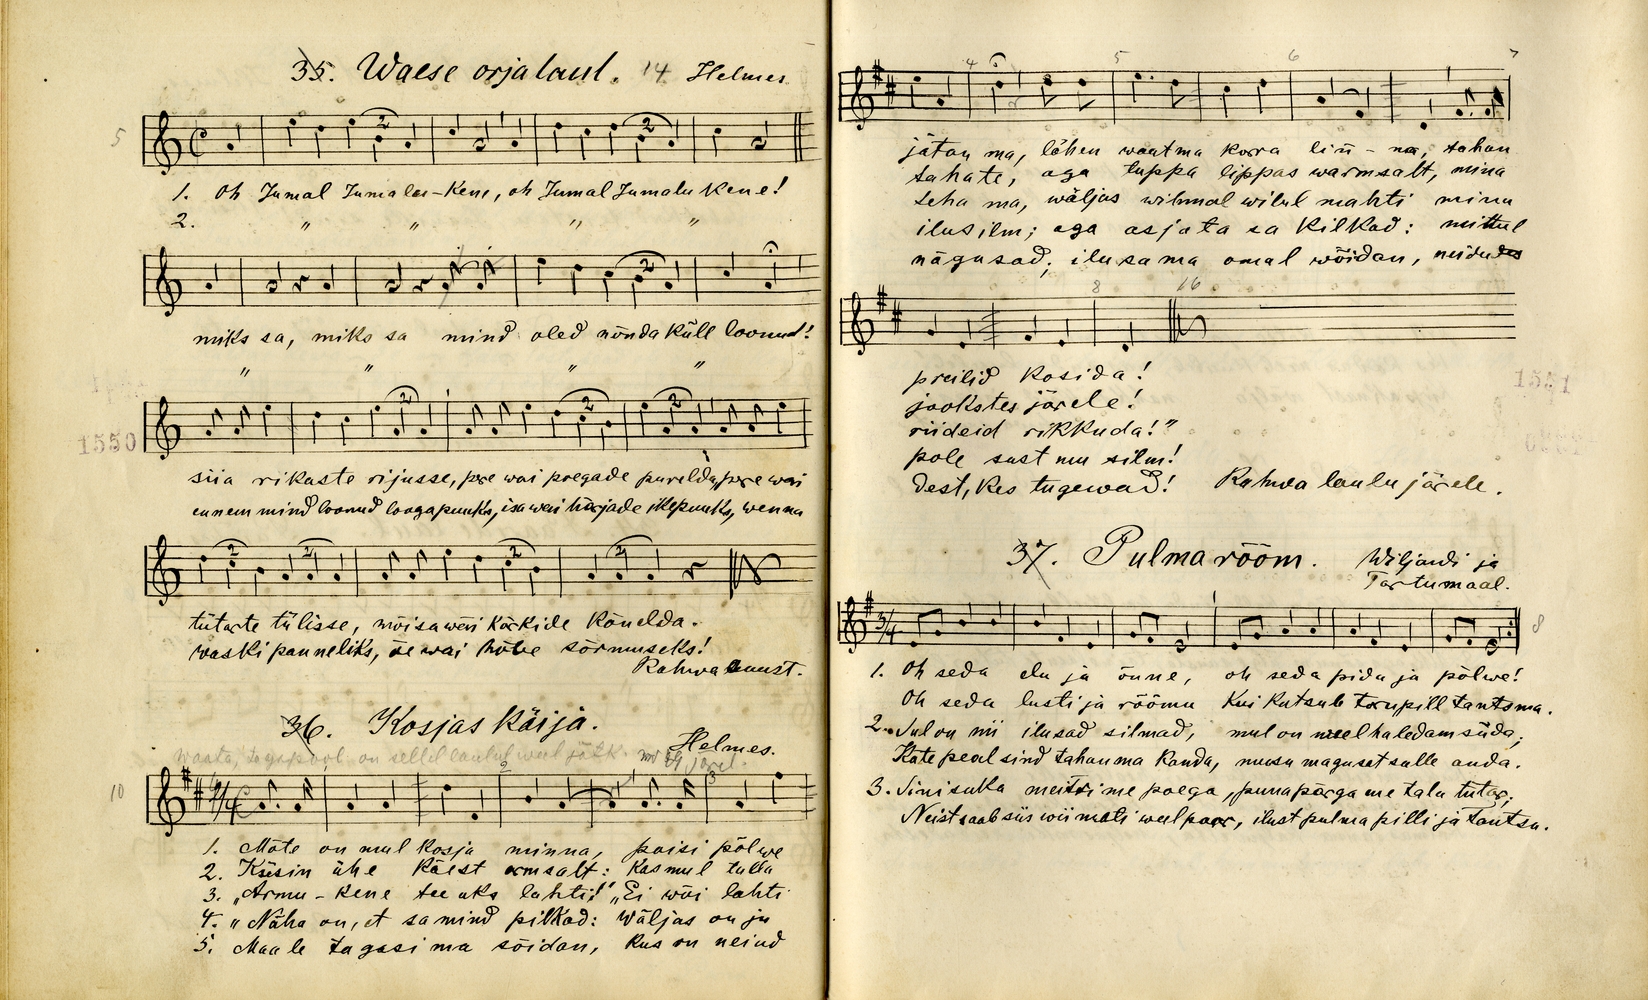 35. Waese orja laul. 14 Helmes
5
1. Oh Jumal Jumalu-kene, oh Jumal Jumalukene!
2. " " " "
miks sa, miks sa mind oled nõnda küll loonud!
" " " "
1550
siia rikaste rijusse, pere wai poegade purelda, pere wai
ennem mind loonud loogapuuks, isa wai härjade ikepuuks, wenna
tütarte tülisse, mõisa wai kärkide kõnelda.
waski panneliks, õe wai hõbe sõrmuseks!
Rahwa suust.
36. Kosjas käija.
Helmes.
10
1. Mõte on mul kosja minna, poisi põlwe
2. Küsin ühe käest armsalt: kas mul tulla
3. „Armu-kene tee uks lahti!" „Ei wõi lahti
4. „Näha on, et sa mind pilkad: Wäljas on ju
5. Maale tagasi ma sõidan, kus on neiud
4 5 6 7
jätan ma, lähen waatma korra lin̄-na, tahan
tahate, aga tuppa lippas warmsalt, mina
teha ma, wäljas wihmal wilul mahti minu
ilus ilm; aga asjata sa kilkad: mittul
nägusad; ilusa ma omal wõidan, neidudes
8 16
preilid kosida!
jookstes järele!
riideid rikkuda!"
pole sust mu silm!
dest, kes tugewad! Rahwa laulu järele.
1551
37. Pulma rõõm. Wiljandi ja
Tartumaal.
8
1. Oh seda elu ja õnne, oh seda pidu ja põlwe!
Oh seda lusti ja rõõmu kui kutsub torupill tantsma.
2. Sul on nii ilusad silmad, mul on weel haledam süda;
Käte peal sind tahan ma kanda, muusu magusat sulle anda.
3. Sinisuka meitrime poega, punapärga me talu tütar;
Neist saab siis wiimati weel paar, ilust pulma pilli ja tantsu.